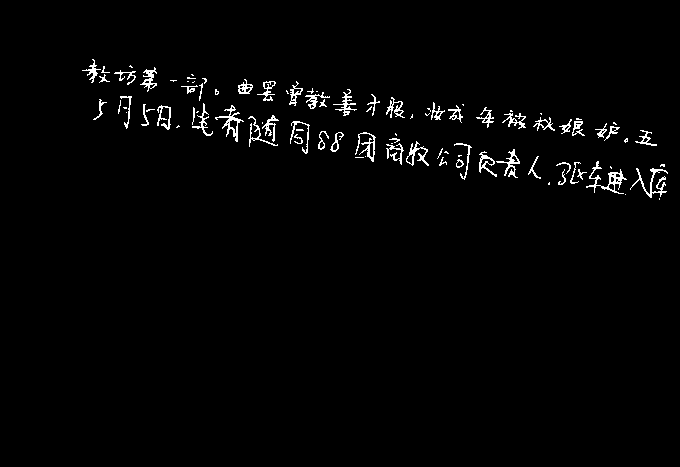 教坊第一部。曲罢曾教善才服,妆成每被秋娘妒。五
5月5日,笔者随同88团商牧公司负责人,驱车进入库